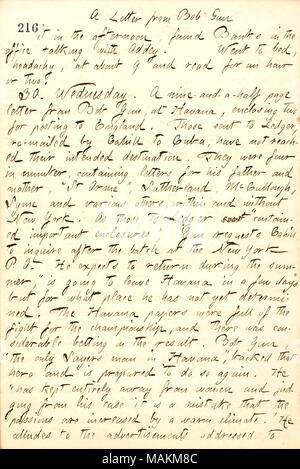 A Letter from Bob Gun
216
it in the afternoon, found Banks in the
office talking with Addey. Went to bed,
headachy, at about 9 and read for an hour
or two.
30. Wednesday. A nine-and-a-half page
letter from Bob Gun, at Havana, enclosing two
for posting to England. Those sent to Ledger,
re-mailed by Cahill to Cuba, have not reach-
ed their intended destination. They were four
in number, containing letters for his father and
mother, "St Orme", Sutherland McCullough,
Syme and various others, within and without
New York. As those to Ledger contain-
ed important enclosures Gun requests Cahill
to inquire after the batch at the New York
P.O. He expects to return during the sum-
mer; "is going to leave Havana in a few days"
but for what place he has not yet determi-
ned. The Havana papers were full of the
fight for the championship, and there was con-
siderable betting on the result. Bob Gun
"the only Sayers man in Havana," backed that
hero and is prepared to do so again. He
"has kept entirely away from women and jud-
ging from his case it is a mistake that the
passions are increased by a warm climate. He
alludes to the advertisements addressed to
alamy
Image ID: MAKM8C
www.alamy.com